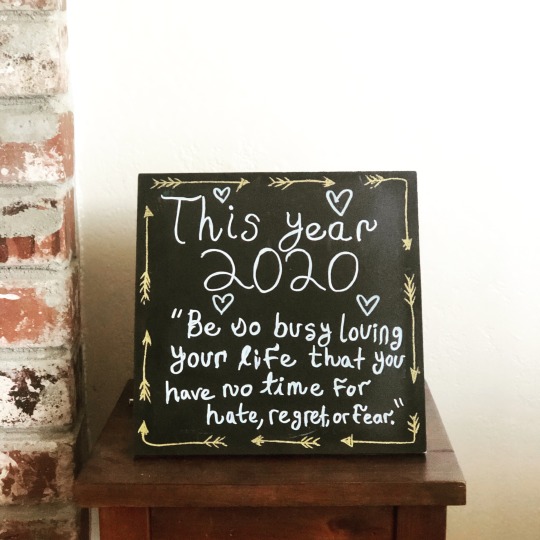 This year
2020
"Be so busy loving
your life that you
have no time for
hate, regret, or fear."